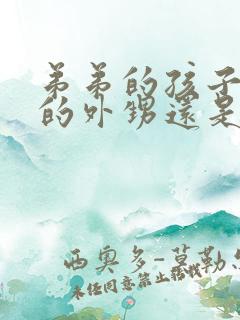 弟弟的孩子
的外甥還是
西奧多-莫勒
未经同意禁止转载